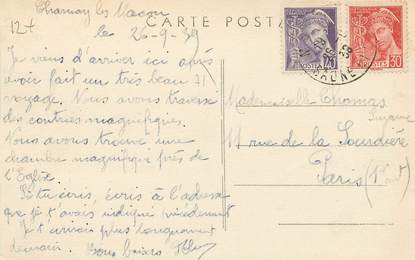 12+
Charnay les Macon
le 26-9-39
CARTE POSTA
Je viens d'arriver ici après
avoir fait un très beau
voyage. Nous avons traversé
des contrées magnifiques.
Nous avons trouvé une
chambre magnifique près de
l'Eglise.
Si tu écris, écris à l'adresse
que je t'avais indiqué précédement
Je t'écrirai plus longuement
demain. Bons baisers
POSTES 40
POSTES 30
Mademoiselle Thomas
Suzanne
11 rue de la Sourdière
Paris (1er arrt)